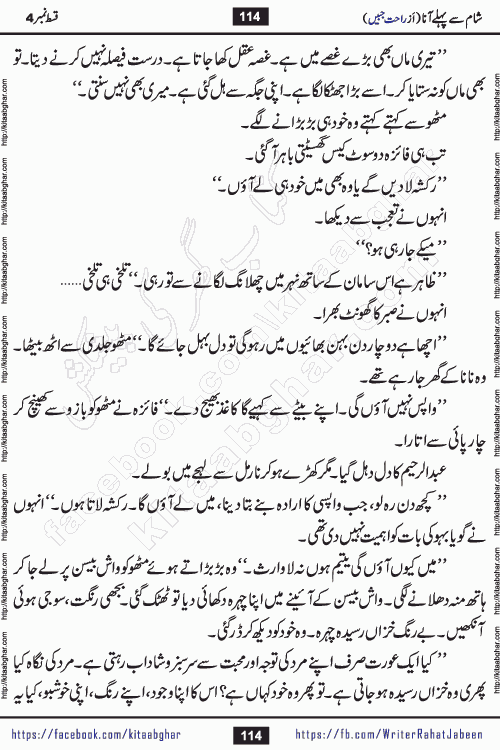 قسط نمبر 4
114
شام سے پہلے آنا (از راحت جبیں)
’’تیری ماں بھی بڑے غصے میں ہے۔ غصہ عقل کھا جاتا ہے۔ درست فیصلہ نہیں کرنے دیتا۔ تو
بھی ماں کو نہ ستایا کر۔ اسے بڑا جھٹکا لگا ہے۔ اپنی جگہ سے ہل گئی ہے۔ میری بھی نہیں سنتی۔‘‘
مٹھو سے کہتے کہتے وہ خود ہی بڑبڑانے لگے۔
تب ہی فائزہ دو سوٹ کیس گھسیٹتی باہر آ گئی۔
’’رکشہ لا دیں گے یا وہ بھی میں خود ہی لے آؤں۔‘‘
انہوں نے تعجب سے دیکھا۔
’’میکے جا رہی ہو؟‘‘
’’ظاہر ہے اس سامان کے ساتھ نہر میں چھلانگ لگانے سے تو رہی۔‘‘ تلخی ہی تلخی......
انہوں نے صبر کا گھونٹ بھرا۔
’’اچھا ہے دو چار دن بہن بھائیوں میں رہو گی تو دل بہل جائے گا۔‘‘ مٹھو جلدی سے اٹھ بیٹھا۔
وہ نانا کے گھر جا رہے تھے۔
’’واپس نہیں آؤں گی۔ اپنے بیٹے سے کہیے گا کاغذ بھیج دے۔‘‘ فائزہ نے مٹھو کو بازو سے کھینچ کر
چارپائی سے اتارا۔
عبدالرحیم کا دل دہل گیا۔ مگر کھڑے ہو کر نارمل سے لہجے میں بولے۔
’’کچھ دن رہ لو، جب واپسی کا ارادہ بنے بتا دینا، میں لے آؤں گا۔ رکشہ لاتا ہوں۔‘‘ انہوں
نے گویا بہو کی بات کو اہمیت نہیں دی تھی۔
’’میں کیوں آؤں گی یتیم ہوں نہ لاوارث۔‘‘ وہ بڑبڑاتے ہوئے مٹھو کو واش بیسن پر لے جا کر
ہاتھ منہ دھلانے لگی۔ واش بیسن کے آئینے میں اپنا چہرہ دکھائی دیا تو ٹھٹک گئی۔ بجھی رنگت، سوجی ہوئی
آنکھیں۔ بے رنگ خزاں رسیدہ چہرہ۔ وہ خود کو دیکھ کر ڈر گئی۔
’’کیا ایک عورت صرف اپنے مرد کی توجہ اور محبت سے سرسبز و شاداب رہتی ہے۔ مرد کی نگاہ کیا
پھری وہ خزاں رسیدہ ہو جاتی ہے۔ تو پھر وہ خود کہاں ہے؟ اس کا اپنا وجود، اپنے رنگ، اپنی خوشبو، کیا یہ
http://kitaabghar.com
facebook.com/kitaabghar
https://facebook.com/kitaabghar
114
https://fb.com/WriterRahatJabeen